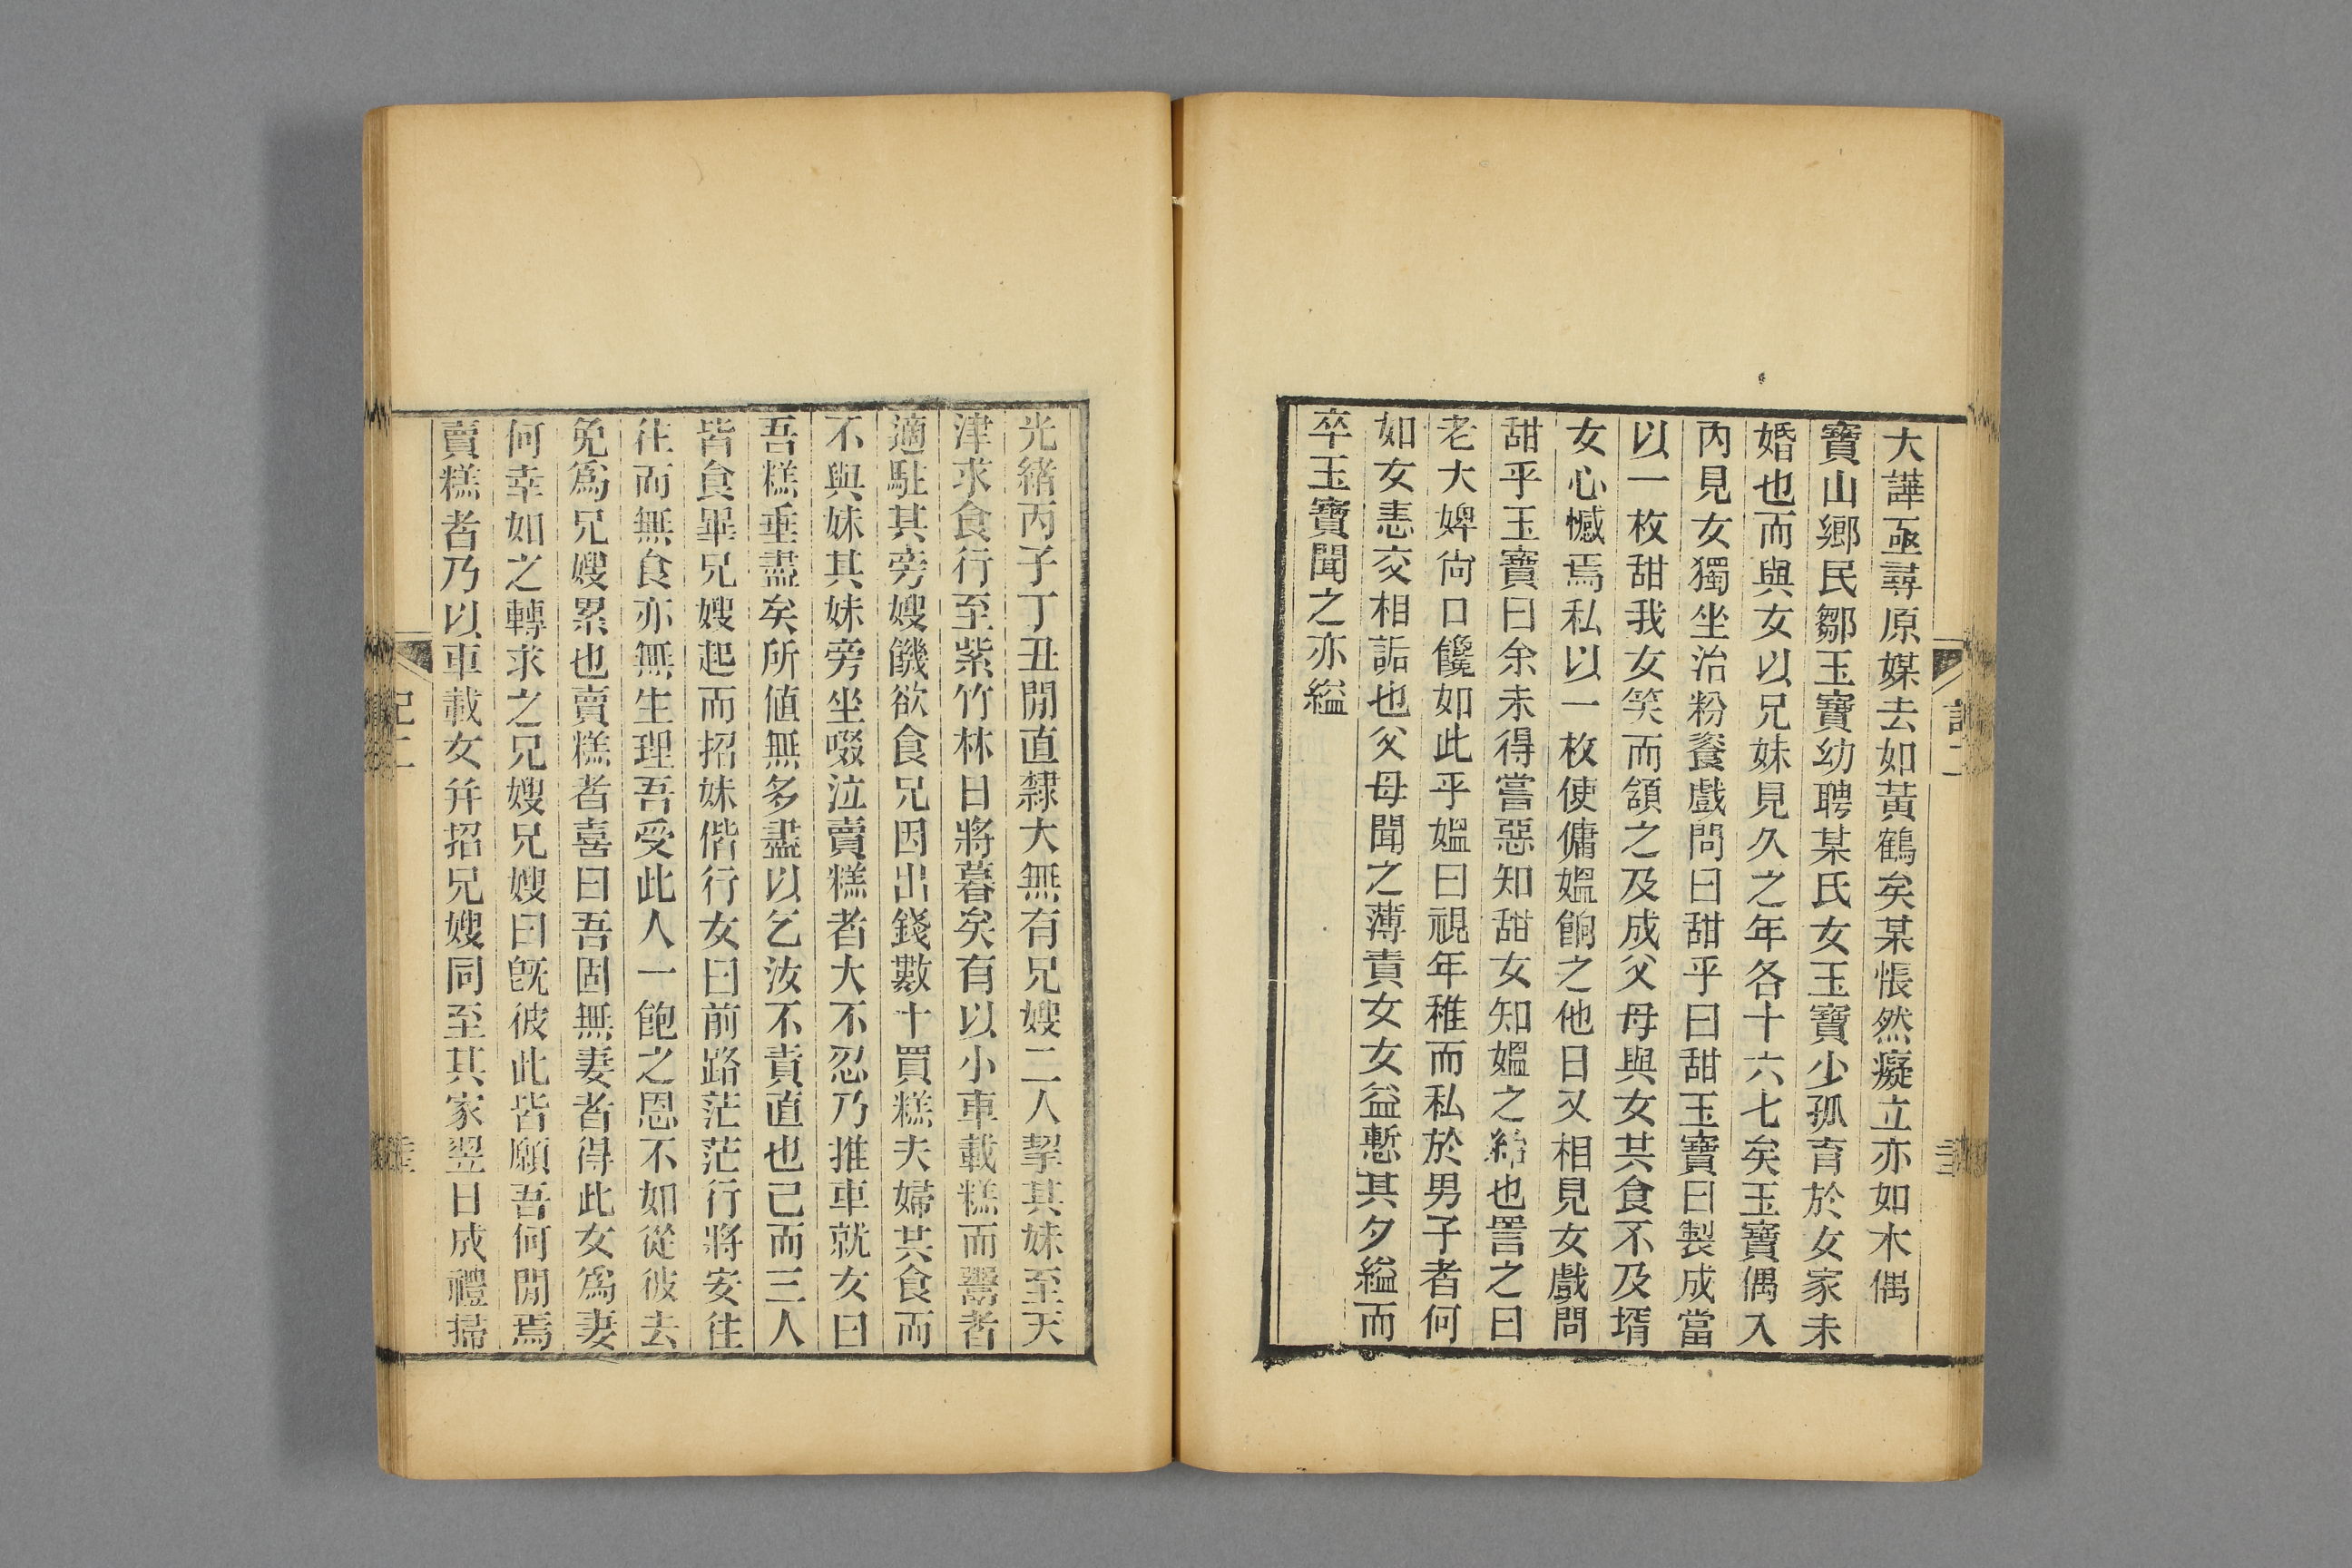 大譁亟尋原媒去如黃鶴矣某悵然癡立亦如木偶
寶山鄉民鄒玉寶幼聘某氏女玉寶少孤育於女家未
婚也而與女以兄妹見久之年各十六七矣玉寶偶入
內見女獨坐治粉餈戲問曰甜乎曰甜玉寶曰製成當
以一枚甜我女笑而頷之及成父母與女共食不及壻
女心憾焉私以一枚使傭媼餉之他日又相見女戲問
甜乎玉寶曰余未得嘗惡知甜女知媼之紿也詈之曰
老大婢尙口饞如此乎媼曰視年稚而私於男子者何
如女恚交相詬也父母聞之薄責女女益慙其夕縊而
卒玉寶聞之亦縊
光緖丙子丁丑閒直隸大無有兄嫂二人挈其妹至天
津求食行至紫竹林日將暮矣有以小車載糕而鬻者
適駐其旁嫂饑欲食兄因出錢數十買糕夫婦共食而
不與妹其妹旁坐啜泣賣糕者大不忍乃推車就女曰
吾糕垂盡矣所値無多盡以乞汝不責直也已而三人
皆食畢兄嫂起而招妹偕行女曰前路茫茫行將安往
往而無食亦無生理吾受此人一飽之恩不如從彼去
免爲兄嫂累也賣糕者喜曰吾固無妻者得此女爲妻
何幸如之轉求之兄嫂兄嫂曰旣彼此皆願吾何閒焉
賣糕者乃以車載女幷招兄嫂同至其家翌日成禮掃